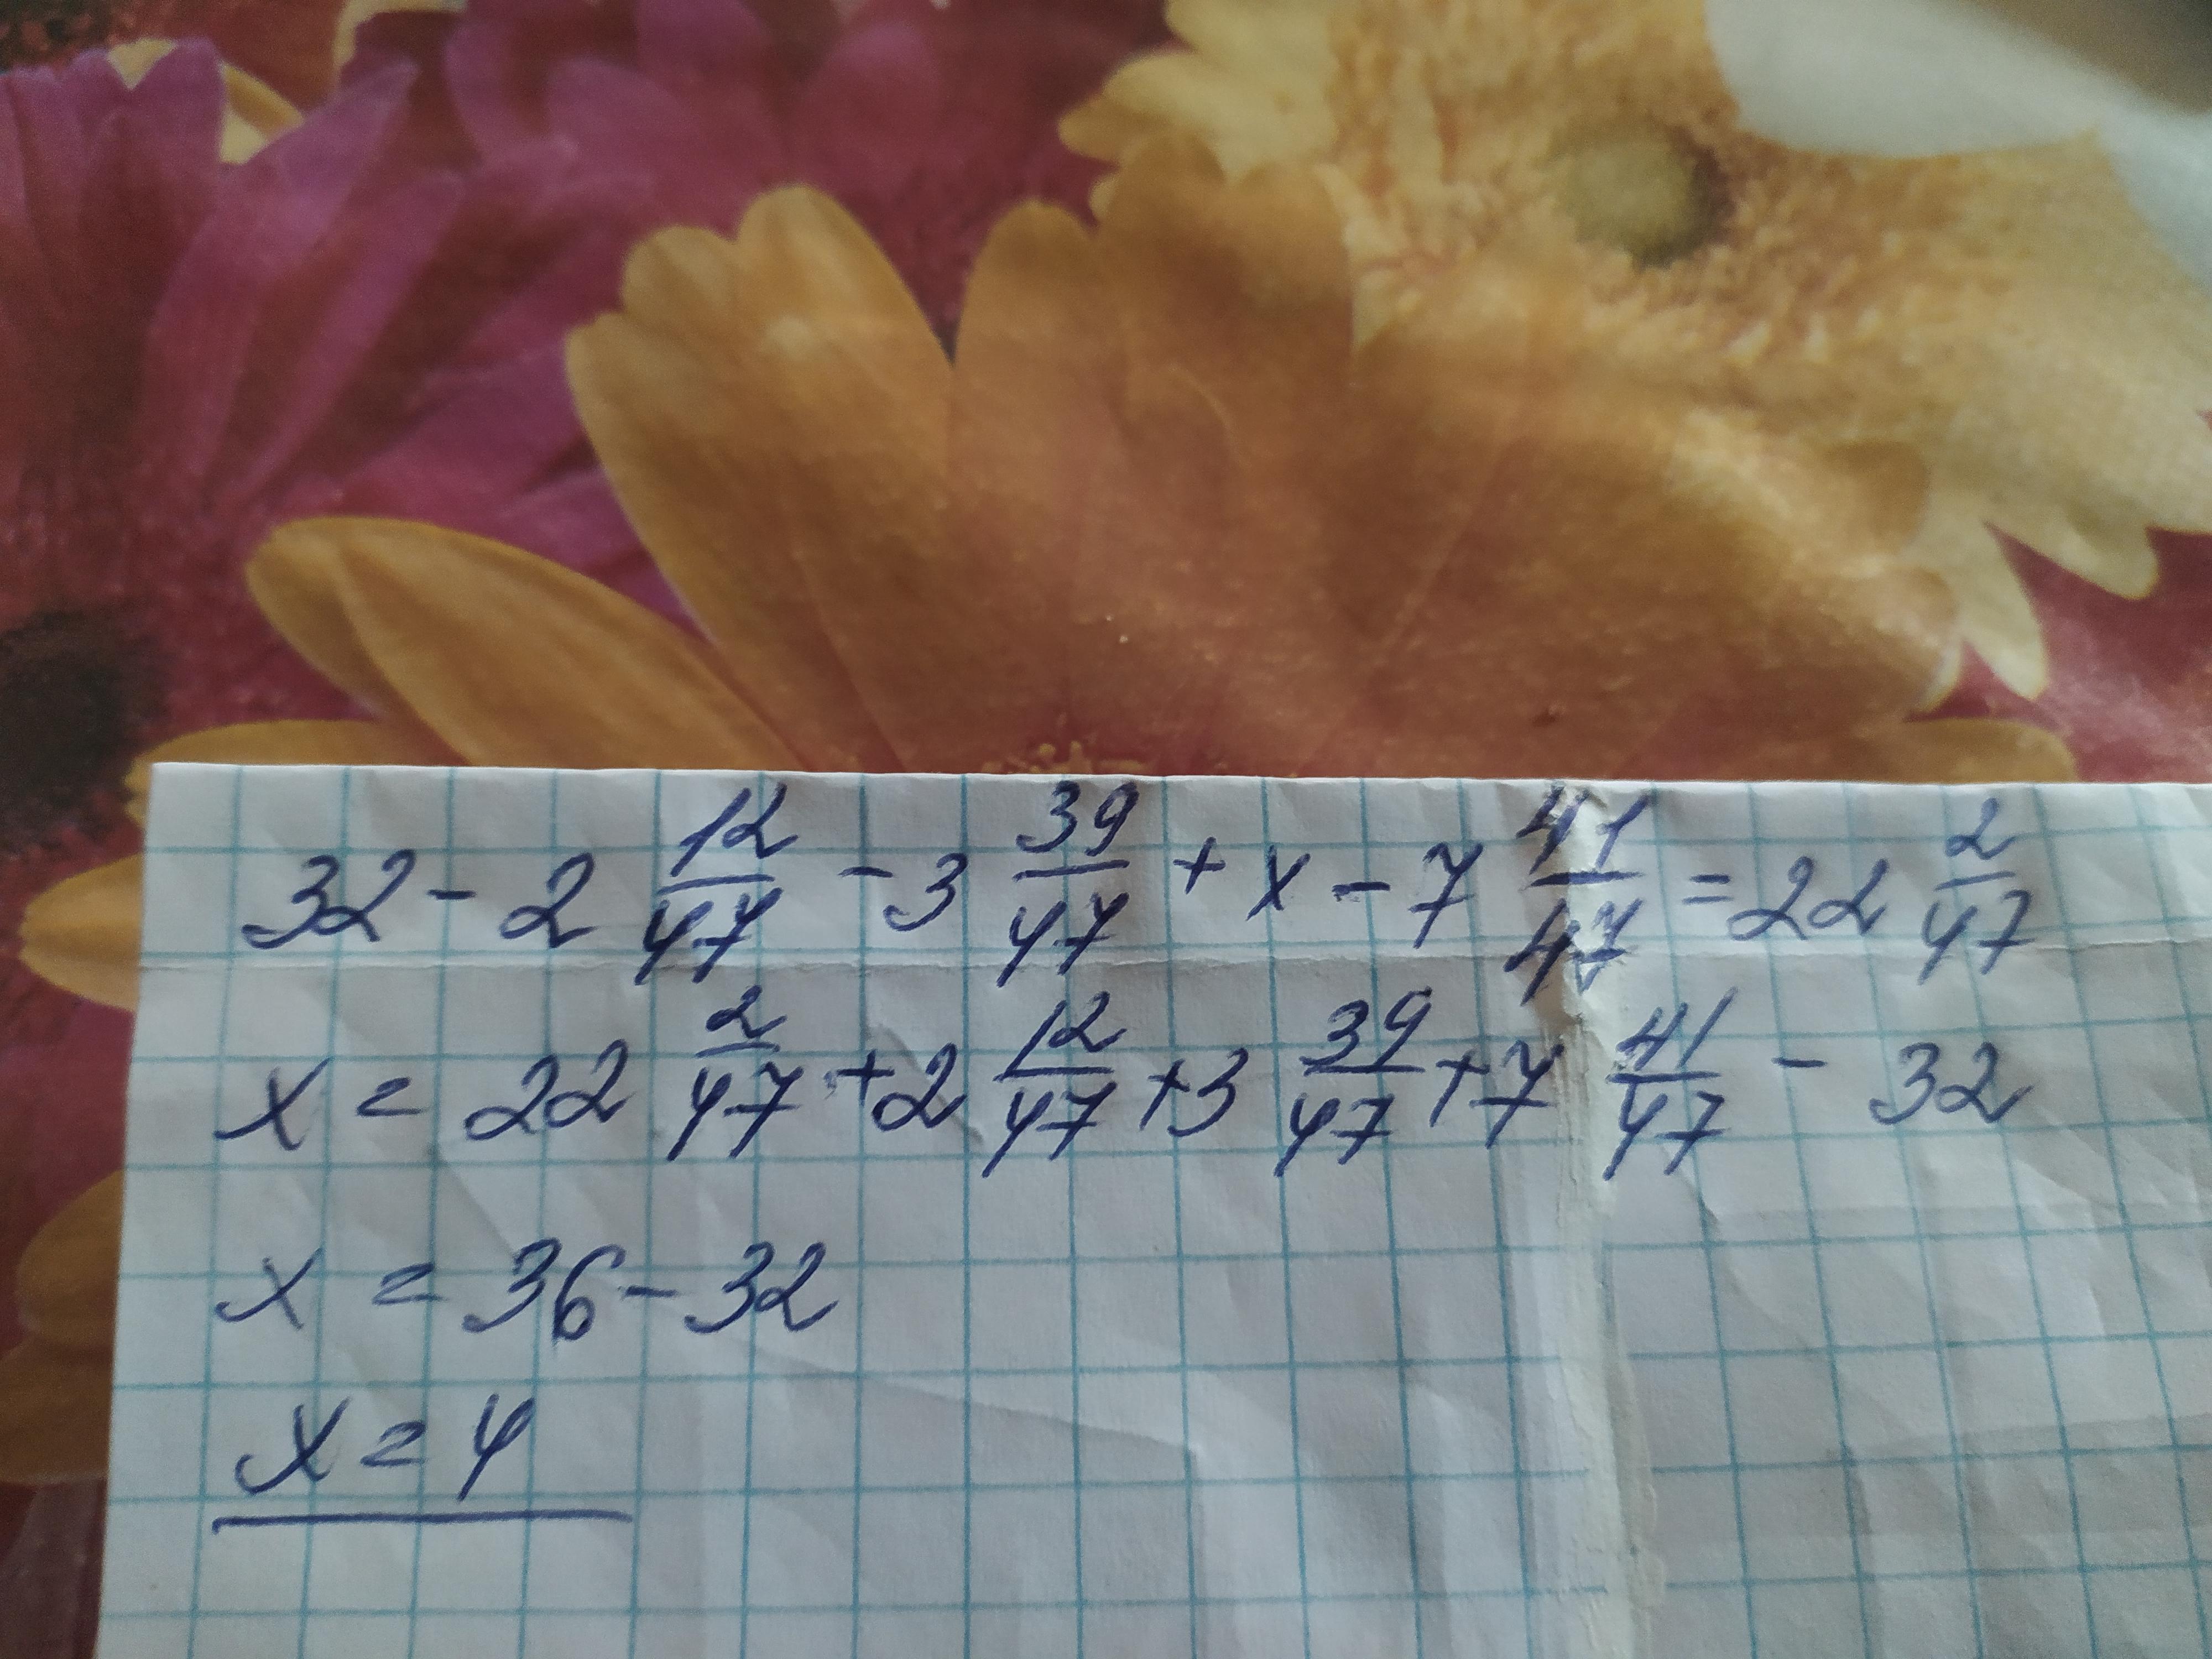 32 - 2 12/47 - 3 39/47 + x - 7 41/47 = 22 2/47
x = 22 2/47 + 2 12/47 + 3 39/47 + 7 41/47 - 32
x = 36 - 32
x = 4